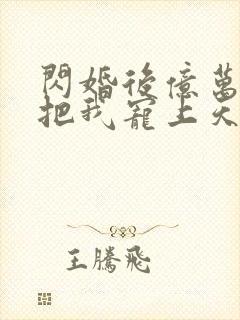 閃婚後億萬
把我寵上天
王騰飛